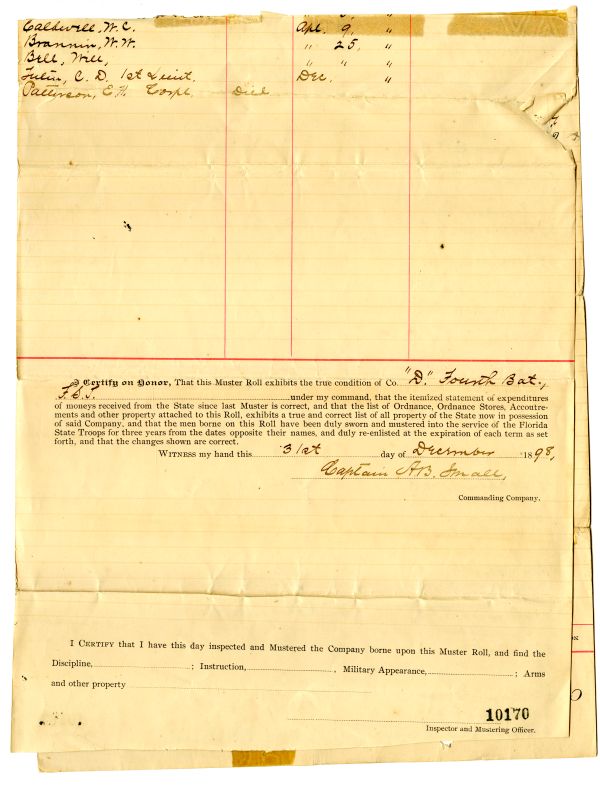 Caldwell, W. C. Apl. 9, "
Brannin, W. W. " 25, "
Bell, Will, " " "
C. D. 1st Lieut. Dec. "
Patterson, E. H. Corpl. Died
I Certify on Honor, That this Muster Roll exhibits the true condition of Co. "D." Fourth Bat.,
F. S. T. under my command, that the itemized statement of expenditures
of moneys received from the State since last Muster is correct, and that the list of Ordnance, Ordnance Stores, Accoutre-
ments and other property attached to this Roll, exhibits a true and correct list of all property of the State now in possession
of said Company, and that the men borne on this Roll have been duly sworn and mustered into the service of the Florida
State Troops for three years from the dates opposite their names, and duly re-enlisted at the expiration of each term as set
forth, and that the changes shown are correct.
Witness my hand this 31st day of December 1898,
Captain A. B. Small,
Commanding Company.
I Certify that I have this day inspected and Mustered the Company borne upon this Muster Roll, and find the
Discipline, ; Instruction, , Military Appearance, ; Arms
and other property
10170
Inspector and Mustering Officer.